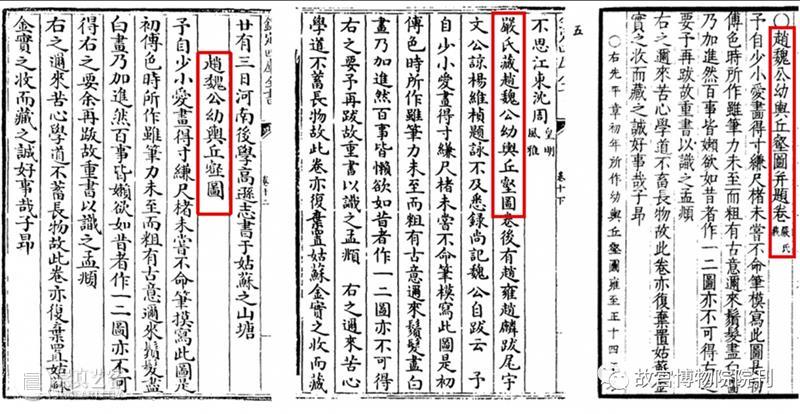 欽定四庫全書
卷十二
廿有三日河南後學高遜志書于姑蘇之山塘
趙魏公幼輿丘壑圖
予自少小愛畫得寸縑尺楮未嘗不命筆模寫此圖是
初傅色時所作雖筆力未至而粗有古意邇來鬚髮盡
白畫乃加進然百事皆懶欲如昔者作一二圖亦不可
得右之要余再跋故重書以識之孟頫
右之邇來苦心學道不蓄長物故此卷亦復棄置姑蘇
金實之收而藏之誠好事哉子昂
五
卷十下
不思江東沈周 皇明風雅
嚴氏藏趙魏公幼輿丘壑圖卷後有趙雍趙麟跋尾宇
文公諒楊維楨題詠不及悉録尚記魏公自跋云 予
自少小愛畫得寸縑尺楮未嘗不命筆模寫此圖是初
傅色時所作雖筆力未至而粗有古意邇來鬚髮盡白
畫乃加進然百事皆懶欲如昔者作一二圖亦不可得
右之要予再跋故重書以識之孟頫 右之邇來苦心
學道不蓄長物故此卷亦復棄置姑蘇金實之收而藏
○趙魏公幼輿丘壑圖并題卷 嚴氏藏
予自少小愛畫得寸縑尺楮未嘗不命筆模寫此圖是初
傅色時所作雖筆力未至而粗有古意邇來鬚髮盡白畫
乃加進然百事皆懶欲如昔者作一二圖亦不可得右之
要予再跋故重書以識之孟頫
右之邇來苦心學道不蓄長物故此卷亦復棄置姑蘇金
實之收而藏之誠好事哉子昂
○右先平章初年所作幼輿丘壑圖雍至正十四
故宫博物院院刊